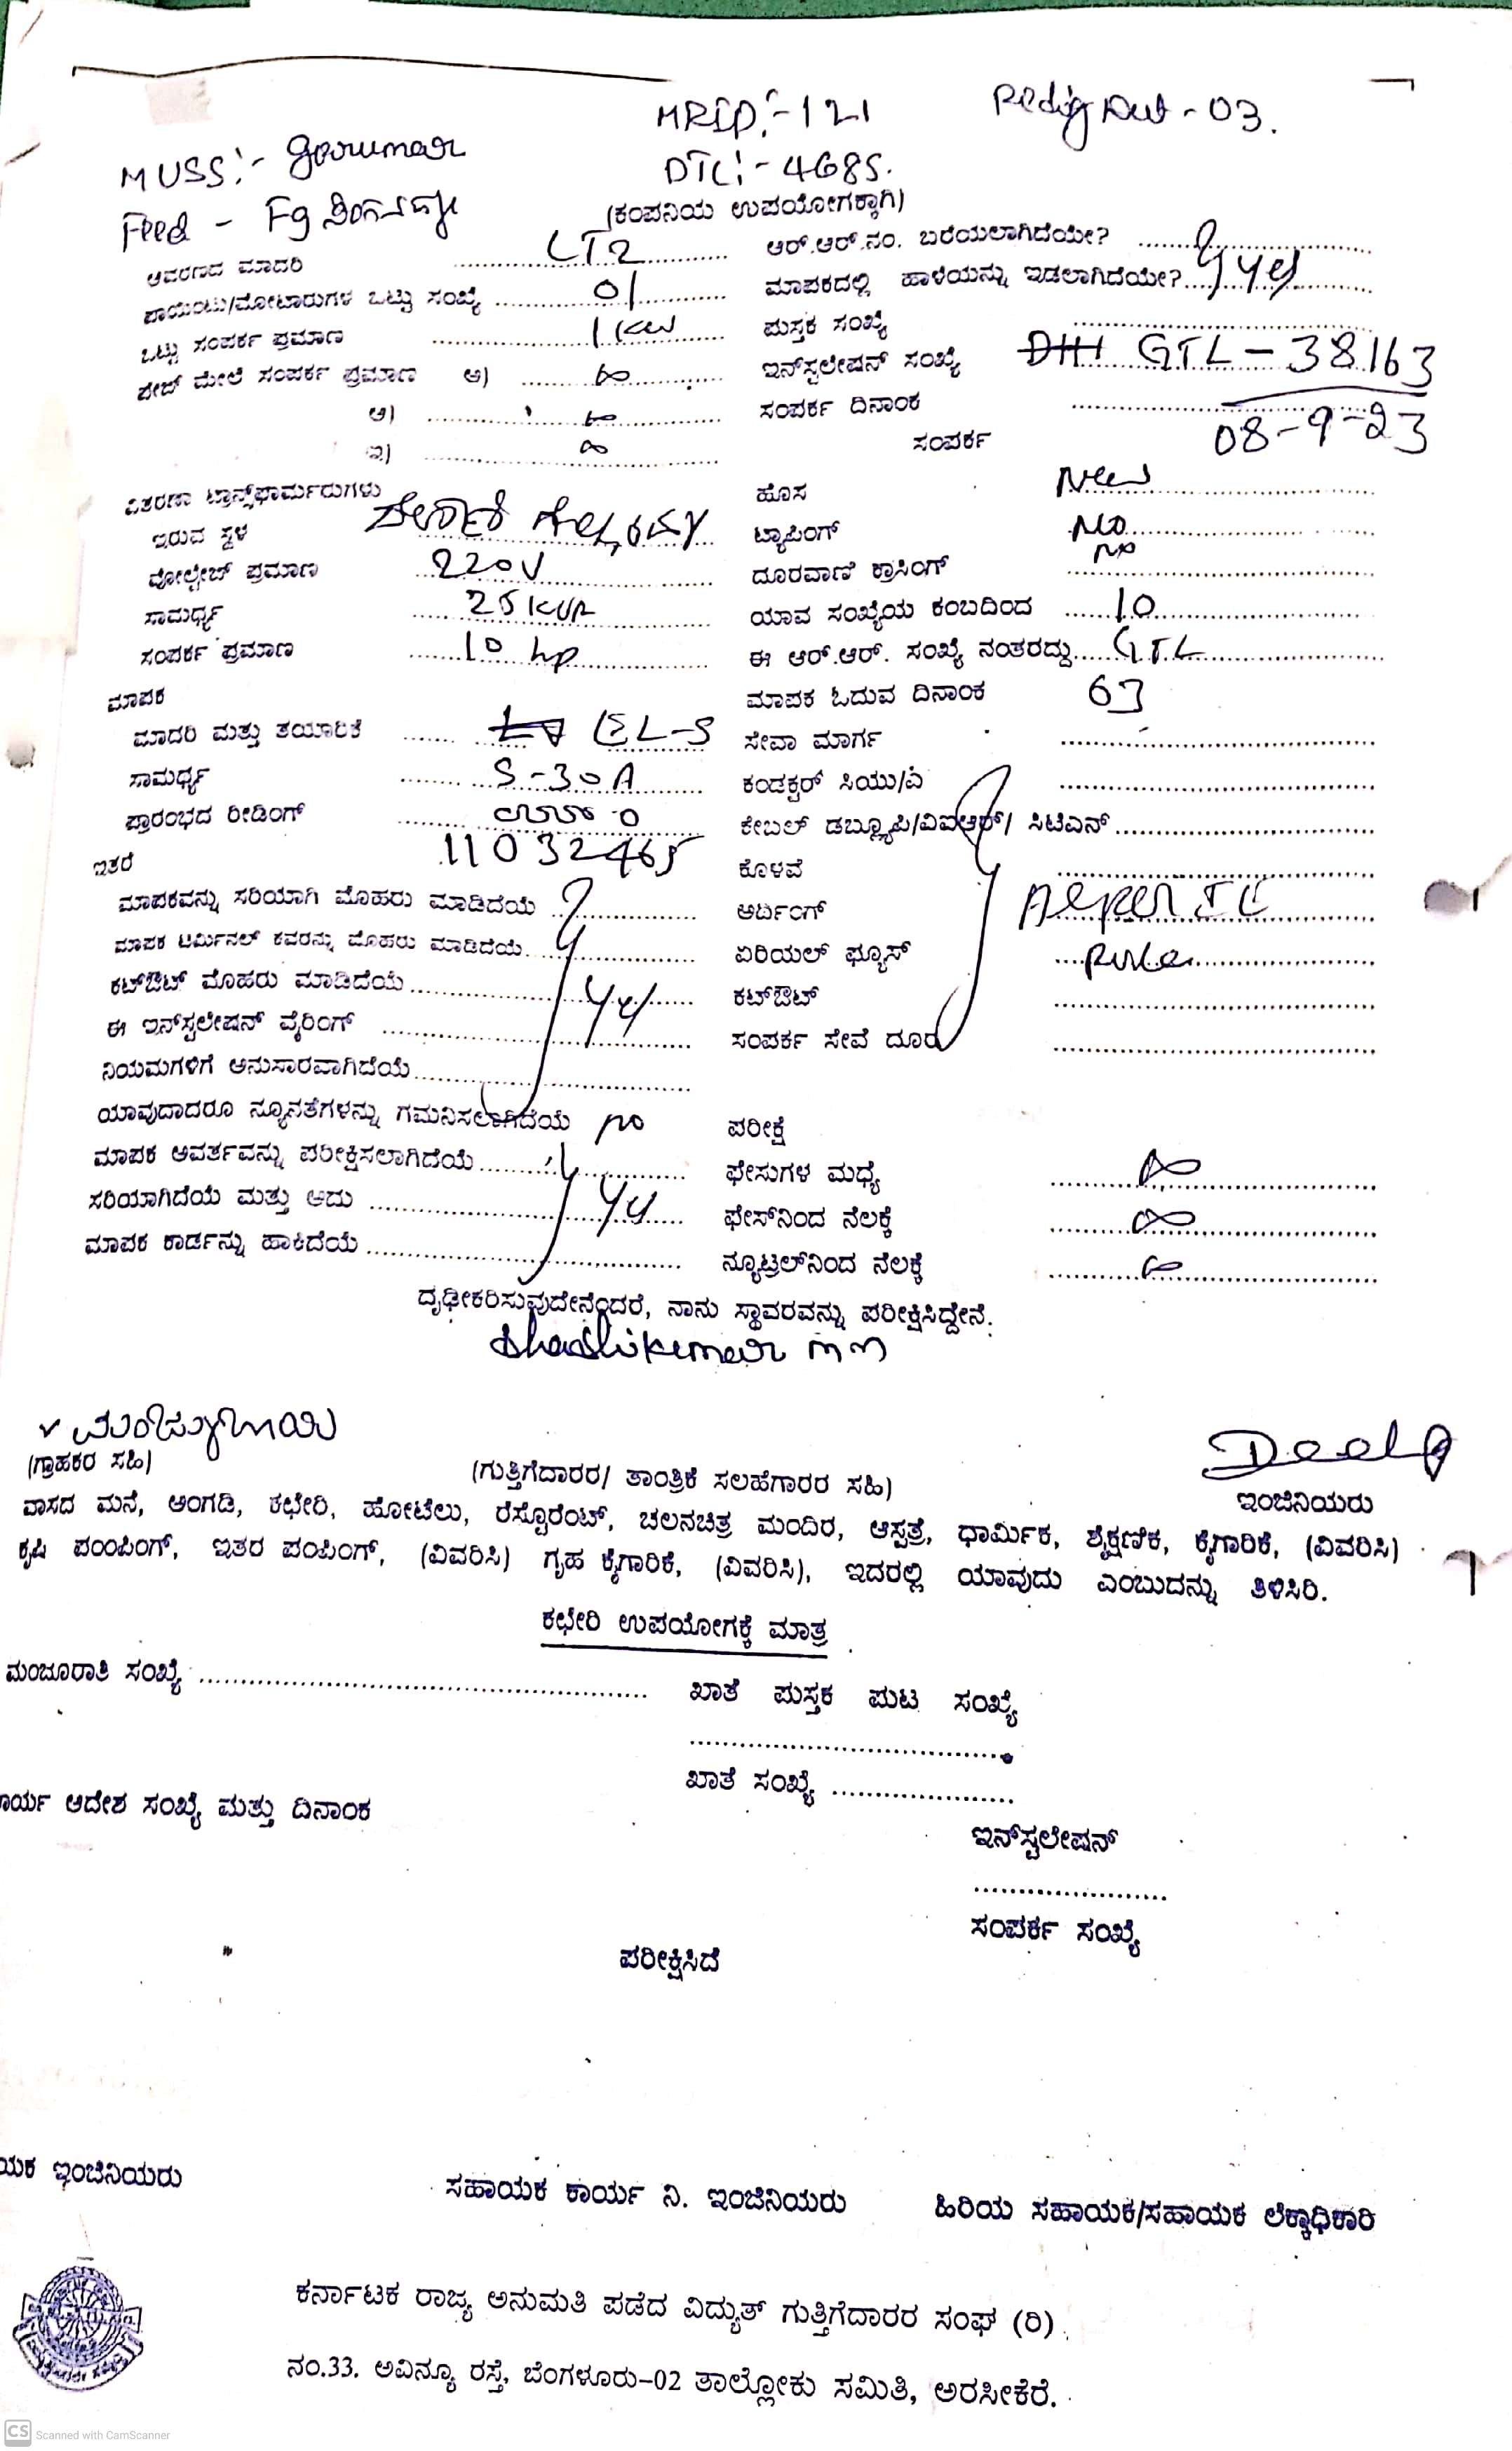 MRID:-121 Redig Dat-03.
MUSS:-
DTC:-4685.
Feed - F9
(ಕಂಪನಿಯ ಉಪಯೋಗಕ್ಕಾಗಿ)
ಆವರಣದ ಮಾದರಿ LT2
ಆರ್.ಆರ್.ನಂ. ಬರೆಯಲಾಗಿದೆಯೇ?
ಪಾಯಿಂಟು/ಮೋಟಾರುಗಳ ಒಟ್ಟು ಸಂಖ್ಯೆ 01
ಮಾಪಕದಲ್ಲಿ ಹಾಳೆಯನ್ನು ಇಡಲಾಗಿದೆಯೇ? yes
ಒಟ್ಟು ಸಂಪರ್ಕ ಪ್ರಮಾಣ 1 KW
ಪುಸ್ತಕ ಸಂಖ್ಯೆ
ಪೇಜ್ ಮೇಲೆ ಸಂಪರ್ಕ ಪ್ರಮಾಣ ಅ) ∞
ಇನ್‌ಸ್ಟಲೇಷನ್ ಸಂಖ್ಯೆ GTL-38163
ಆ) ∞
ಸಂಪರ್ಕ ದಿನಾಂಕ 08-9-23
ಇ) ∞
ಸಂಪರ್ಕ
ವಿತರಣಾ ಟ್ರಾನ್ಸ್‌ಫಾರ್ಮರುಗಳು
ಹೊಸ New
ಇರುವ ಸ್ಥಳ
ಟ್ಯಾಪಿಂಗ್ No
ವೋಲ್ಟೇಜ್ ಪ್ರಮಾಣ 220V
ದೂರವಾಣಿ ಕ್ರಾಸಿಂಗ್ no
ಸಾಮರ್ಥ್ಯ 25 KVA
ಯಾವ ಸಂಖ್ಯೆಯ ಕಂಬದಿಂದ 10
ಸಂಪರ್ಕ ಪ್ರಮಾಣ 10 hp
ಈ ಆರ್.ಆರ್. ಸಂಖ್ಯೆ ನಂತರದ್ದು GTL
ಮಾಪಕ
ಮಾಪಕ ಓದುವ ದಿನಾಂಕ 03
ಮಾದರಿ ಮತ್ತು ತಯಾರಿಕೆ EL-S
ಸೇವಾ ಮಾರ್ಗ
ಸಾಮರ್ಥ್ಯ 5-30A
ಕಂಡಕ್ಟರ್ ಸಿಯು/ಎ
ಪ್ರಾರಂಭದ ರೀಡಿಂಗ್
ಕೇಬಲ್ ಡಬ್ಲ್ಯೂಪಿ/ವಿಐಆರ್/ ಸಿಟಿಎನ್
ಇತರೆ 11032465
ಕೊಳವೆ
ಮಾಪಕವನ್ನು ಸರಿಯಾಗಿ ಮೊಹರು ಮಾಡಿದೆಯೆ
ಅರ್ದಿಂಗ್
ಮಾಪಕ ಟರ್ಮಿನಲ್ ಕವರನ್ನು ಮೊಹರು ಮಾಡಿದೆಯೆ
ಏರಿಯಲ್ ಫ್ಯೂಸ್
ಕಟ್‌ಔಟ್ ಮೊಹರು ಮಾಡಿದೆಯೆ
ಕಟ್‌ಔಟ್
ಈ ಇನ್‌ಸ್ಟಲೇಷನ್ ವೈರಿಂಗ್
ಸಂಪರ್ಕ ಸೇವೆ ದೂರ
ನಿಯಮಗಳಿಗೆ ಅನುಸಾರವಾಗಿದೆಯೆ
ಯಾವುದಾದರೂ ನ್ಯೂನತೆಗಳನ್ನು ಗಮನಿಸಲಾಗಿದೆಯೆ no
ಪರೀಕ್ಷೆ
ಮಾಪಕ ಆವರ್ತವನ್ನು ಪರೀಕ್ಷಿಸಲಾಗಿದೆಯೆ
ಫೇಸುಗಳ ಮಧ್ಯೆ ∞
ಸರಿಯಾಗಿದೆಯೆ ಮತ್ತು ಅದು
ಫೇಸ್‌ನಿಂದ ನೆಲಕ್ಕೆ ∞
ಮಾಪಕ ಕಾರ್ಡನ್ನು ಹಾಕಿದೆಯೆ
ನ್ಯೂಟ್ರಲ್‌ನಿಂದ ನೆಲಕ್ಕೆ ∞
ದೃಢೀಕರಿಸುವುದೇನೆಂದರೆ, ನಾನು ಸ್ಥಾವರವನ್ನು ಪರೀಕ್ಷಿಸಿದ್ದೇನೆ.
Shashikumar m n
(ಗ್ರಾಹಕರ ಸಹಿ)
(ಗುತ್ತಿಗೆದಾರರ/ ತಾಂತ್ರಿಕೆ ಸಲಹೆಗಾರರ ಸಹಿ)
ಇಂಜಿನಿಯರು
ವಾಸದ ಮನೆ, ಅಂಗಡಿ, ಕಛೇರಿ, ಹೋಟೆಲು, ರೆಸ್ಟೊರೆಂಟ್, ಚಲನಚಿತ್ರ ಮಂದಿರ, ಆಸ್ಪತ್ರೆ, ಧಾರ್ಮಿಕ, ಶೈಕ್ಷಣಿಕ, ಕೈಗಾರಿಕೆ, (ವಿವರಿಸಿ)
ಕೃಷಿ ಪಂಪಿಂಗ್, ಇತರ ಪಂಪಿಂಗ್, (ವಿವರಿಸಿ) ಗೃಹ ಕೈಗಾರಿಕೆ, (ವಿವರಿಸಿ), ಇದರಲ್ಲಿ ಯಾವುದು ಎಂಬುದನ್ನು ತಿಳಿಸಿರಿ.
ಕಛೇರಿ ಉಪಯೋಗಕ್ಕೆ ಮಾತ್ರ
ಮಂಜೂರಾತಿ ಸಂಖ್ಯೆ
ಖಾತೆ ಪುಸ್ತಕ ಪುಟ ಸಂಖ್ಯೆ
ಖಾತೆ ಸಂಖ್ಯೆ
ಾರ್ಯ ಆದೇಶ ಸಂಖ್ಯೆ ಮತ್ತು ದಿನಾಂಕ
ಇನ್‌ಸ್ಟಲೇಷನ್
ಸಂಪರ್ಕ ಸಂಖ್ಯೆ
ಪರೀಕ್ಷಿಸಿದೆ
ಯಕ ಇಂಜಿನಿಯರು
ಸಹಾಯಕ ಕಾರ್ಯ ನಿ. ಇಂಜಿನಿಯರು
ಹಿರಿಯ ಸಹಾಯಕ/ಸಹಾಯಕ ಲೆಕ್ಕಾಧಿಕಾರಿ
ಕರ್ನಾಟಕ ರಾಜ್ಯ ಅನುಮತಿ ಪಡೆದ ವಿದ್ಯುತ್ ಗುತ್ತಿಗೆದಾರರ ಸಂಘ (ರಿ)
ನಂ.33. ಅವಿನ್ಯೂ ರಸ್ತೆ, ಬೆಂಗಳೂರು-02 ತಾಲ್ಲೋಕು ಸಮಿತಿ, ಅರಸೀಕೆರೆ.
CS Scanned with CamScanner